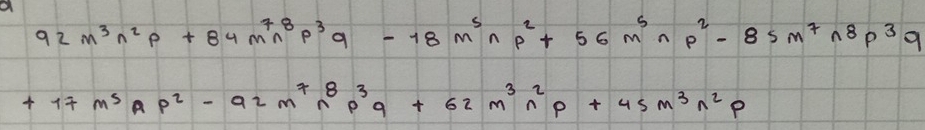 92 m³n²p + 84 m⁷n⁸p³q - 18 m⁵ n p² + 56 m⁵ n p² - 85 m⁷ n⁸ p³ q
+ 17 m⁵ n p² - 92 m⁷ n⁸ p³ q + 62 m³ n² p + 45 m³ n² p